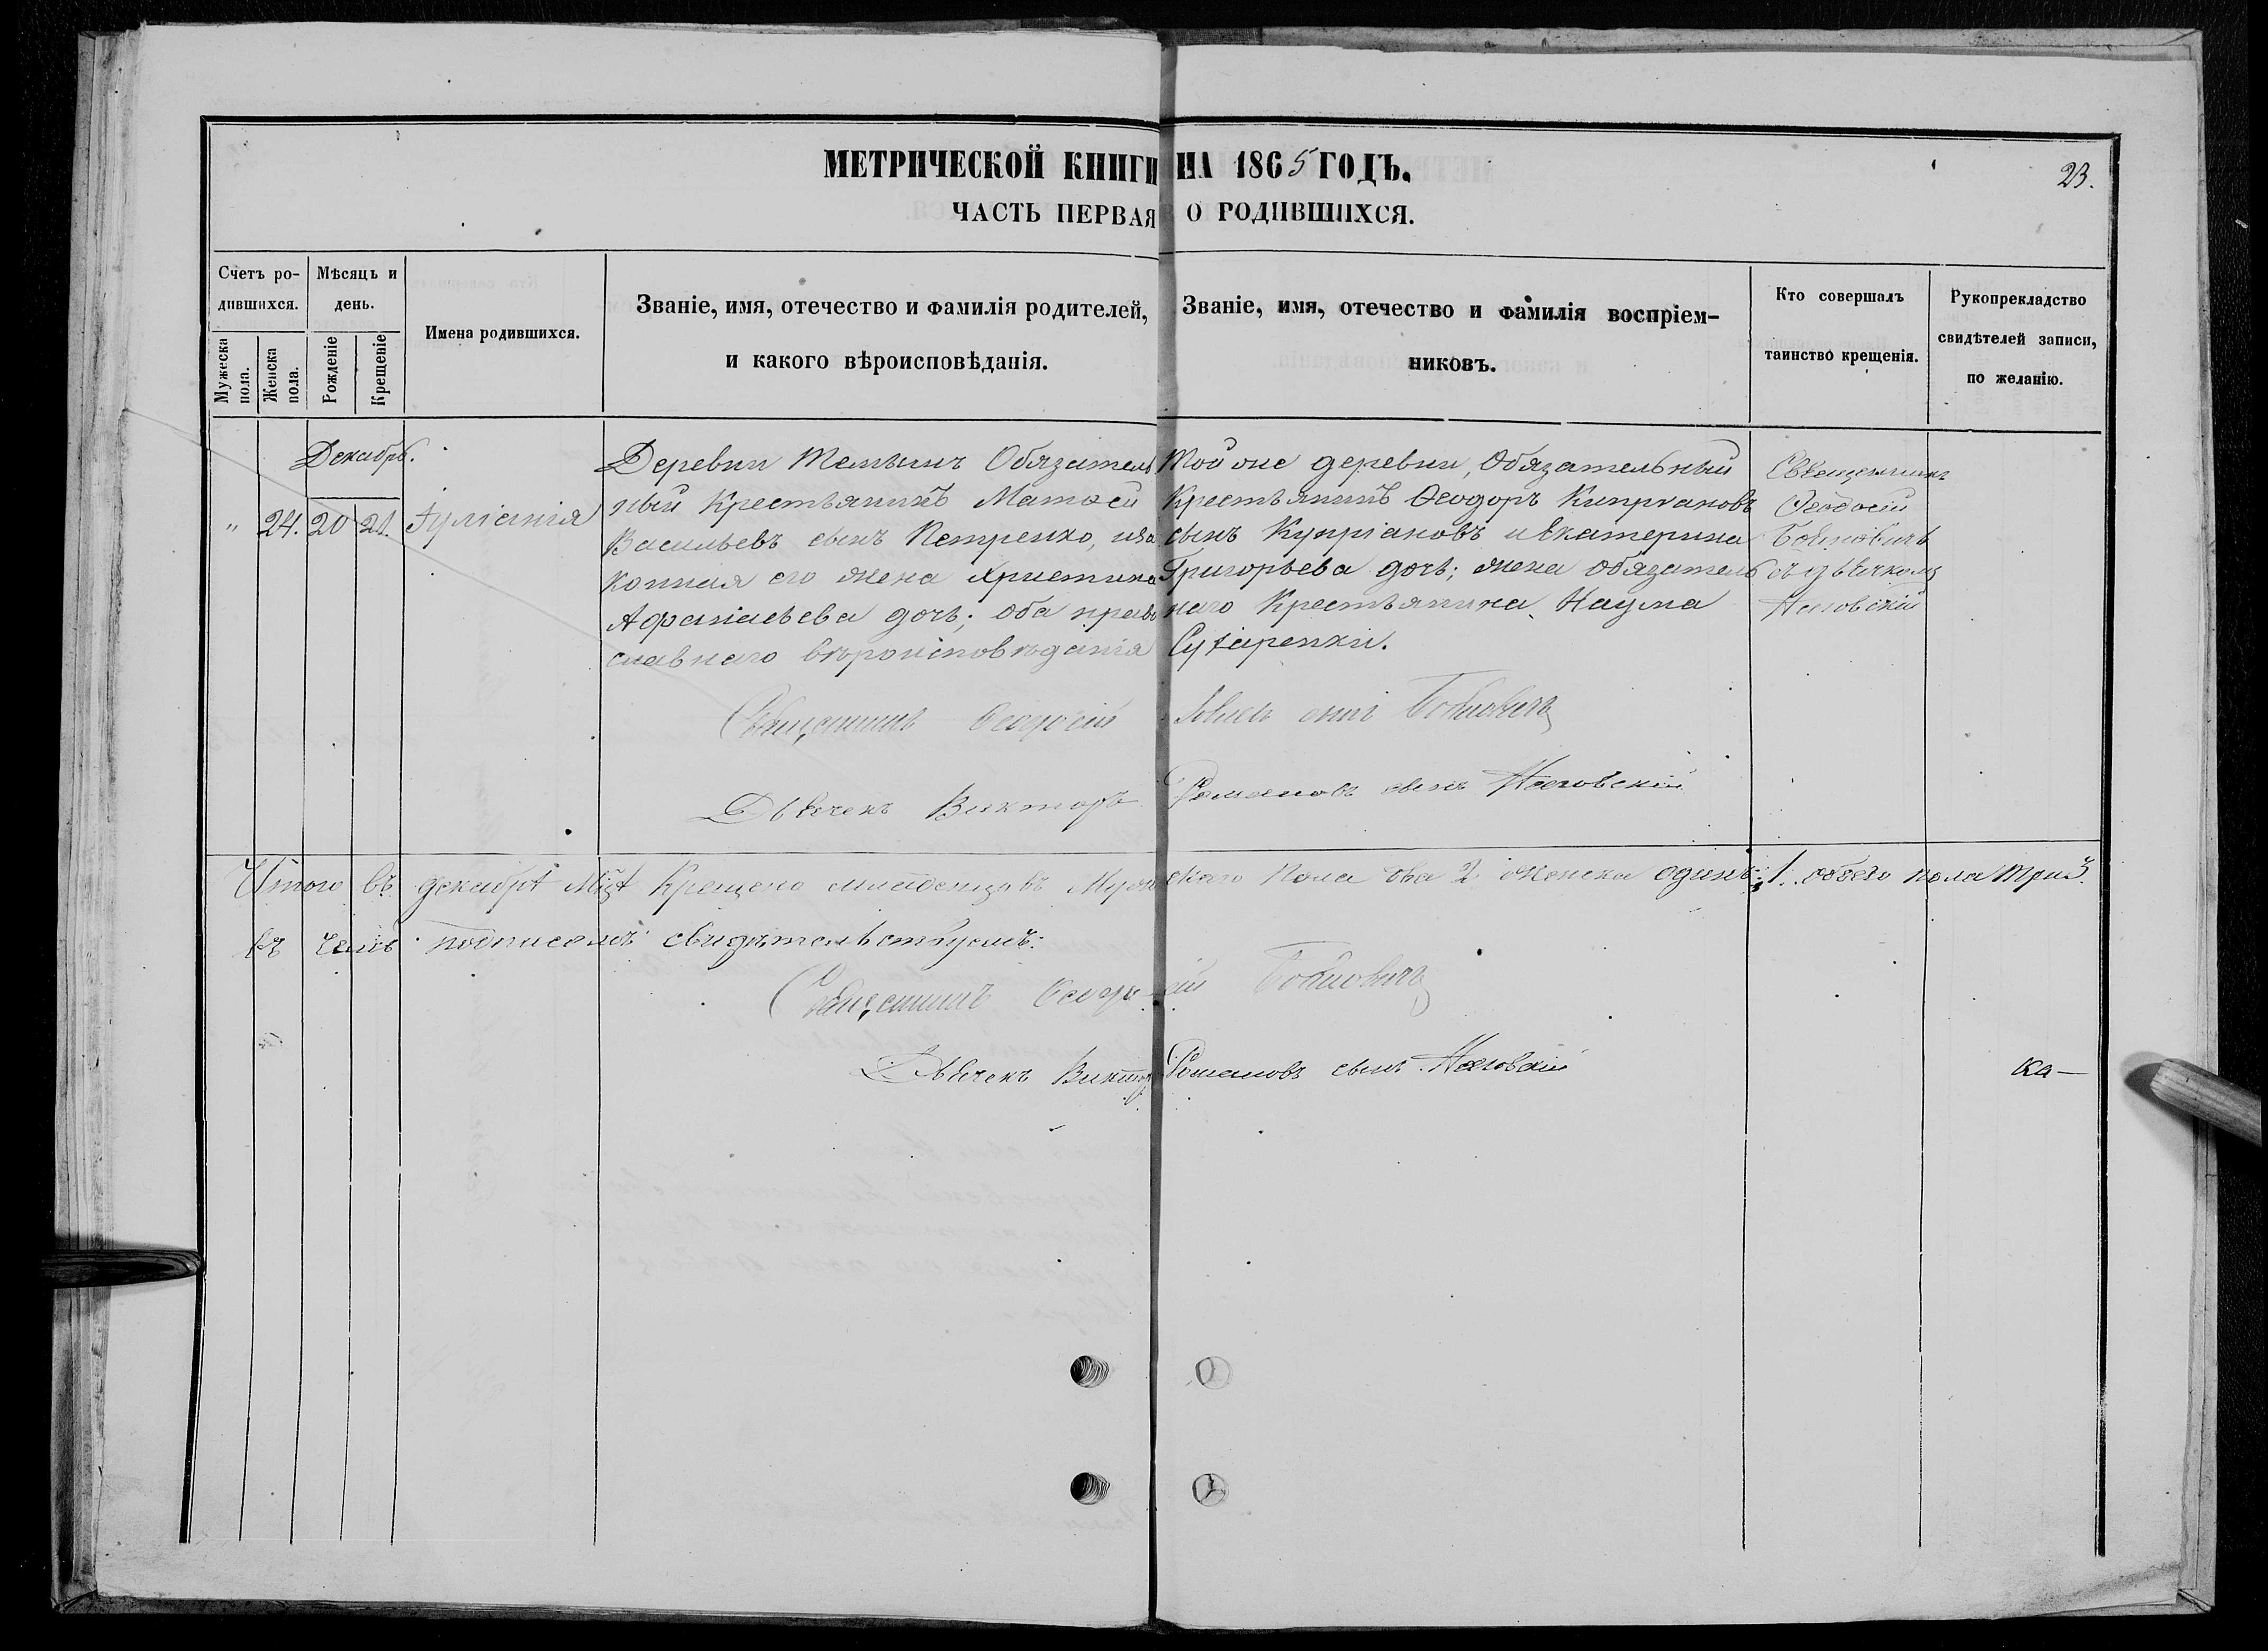 МЕТРИЧЕСКОЙ КНИГИ НА 1865 ГОДЪ.
23.
ЧАСТЬ ПЕРВАЯ О РОДИВШИХСЯ.
Счетъ ро-
дившихся.
Мужеска пола.
Женска пола.
Мѣсяцъ и
день.
Рожденіе
Крещеніе
Имена родившихся.
Званіе, имя, отечество и фамилія родителей,
и какого вѣроисповѣданія.
Званіе, имя, отечество и фамилія воспріем-
никовъ.
Кто совершалъ
таинство крещенія.
Рукопрекладство
свидѣтелей записи,
по желанію.
Декабрь.
" 24. 20 21. Іуліанія
Деревни Обязатель
ный Крестьянинъ Матѳей
Васильевъ сынъ Петренко, иза
конная его жена Христина
Афанасьева дочь; оба право
славнаго вѣроисповѣданія
Той же деревни, Обязательный
Крестьянинъ Ѳеодоръ Кипріановъ
сынъ Купріановъ и Екатерина
Григорьева дочь; жена обязатель
наго Крестьянина Наума
Священникъ
Ѳеодосій
съ дьячкомъ
Священникъ Ѳеодосій
сынъ
Дьячекъ Викторъ Романовъ сынъ
Итого въ декабрѣ Крещено младенцовъ Мужескаго Пола два 2 женска одинъ 1. обоего пола три 3.
въ чемъ подписомъ свидѣтельствуемъ:
Священникъ Ѳеодосій
Дьячекъ Викторъ Романовъ сынъ
ка—